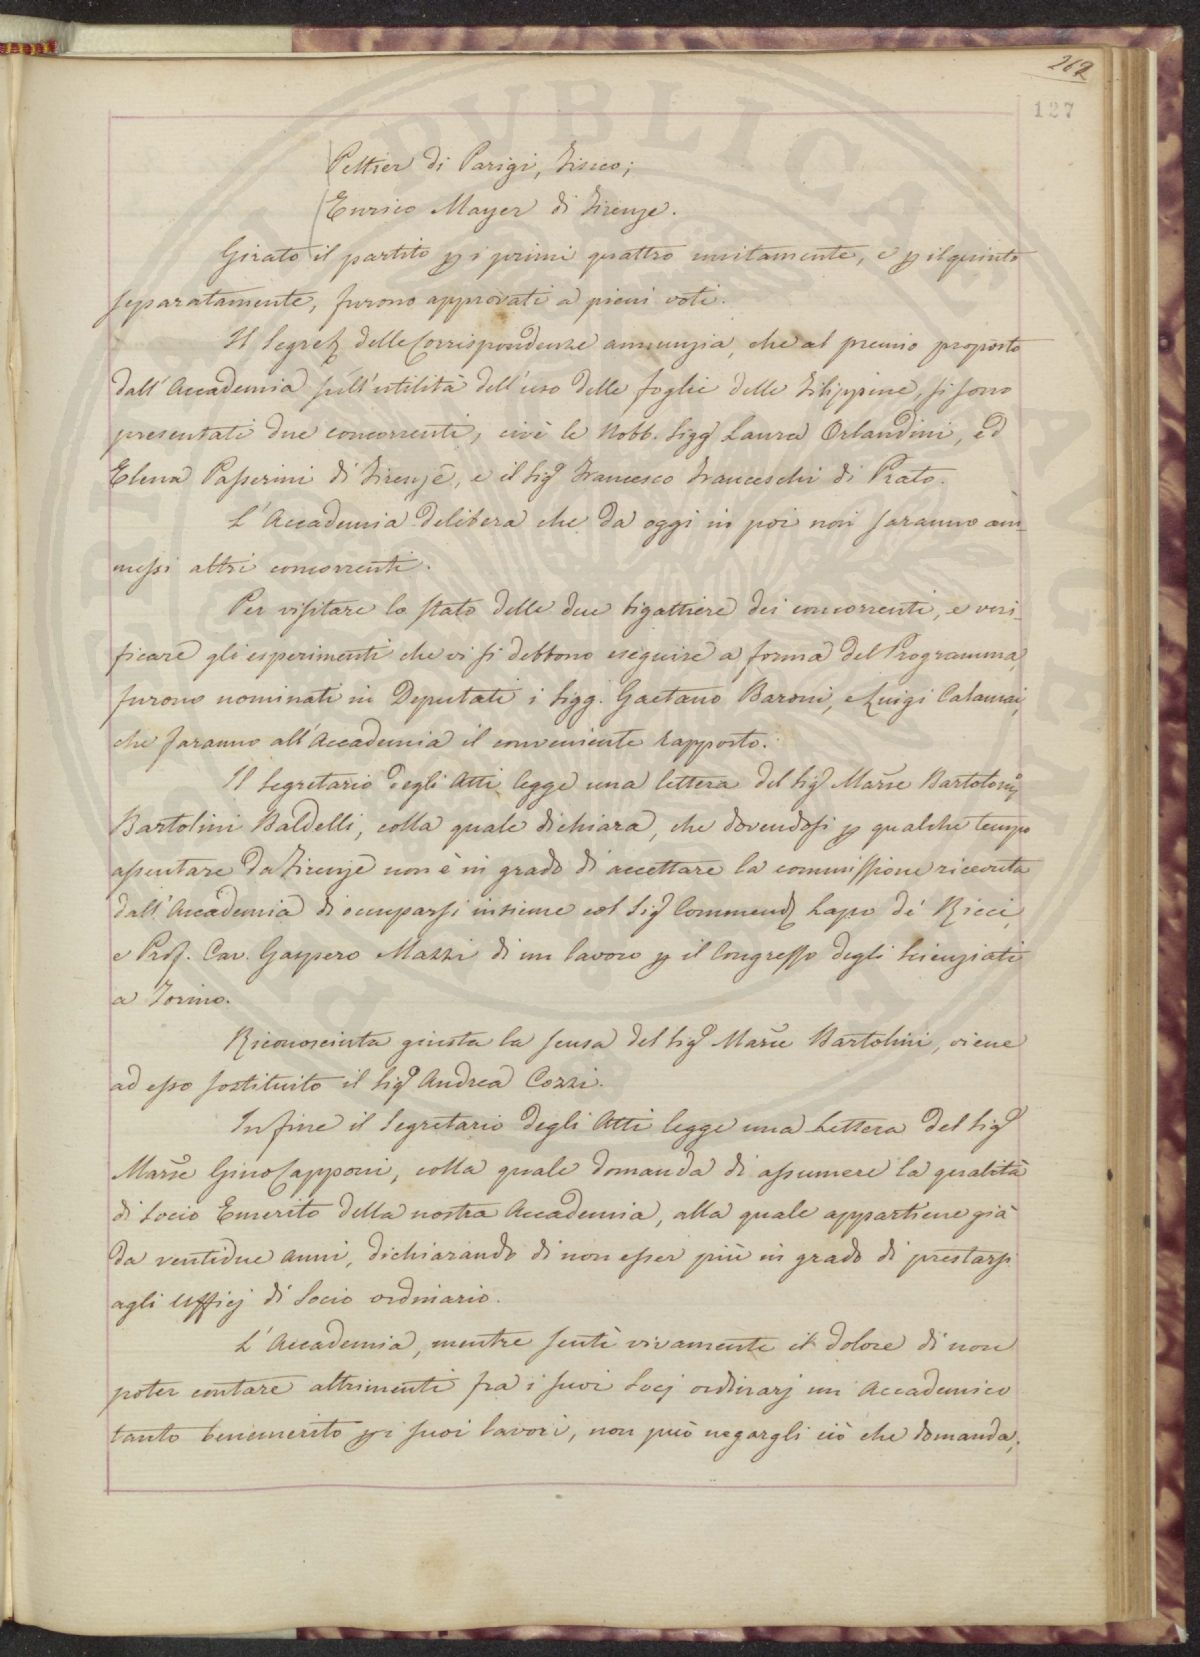 262
127
Peltier di Parigi, Fisico;
Enrico Mayer di Firenze.
Girato il partito p i primi quattro unitamente, e p il quinto
separatamente, furono approvati a pieni voti.
Il Segret. delle Corrispondenze annunzia, che al premio proposto
dall'Accademia sull'utilità dell'uso delle foglie delle Filippine, si sono
presentati due concorrenti, cioè le Nobb. Sigg.e Laura Orlandini, ed
Elena Passerini di Firenze, e il Sig.e Francesco Franceschi di Prato.
L'Accademia delibera che da oggi in poi non saranno am-
messi altri concorrenti.
Per visitare lo stato delle due bigattiere dei concorrenti, e veri-
ficare gli esperimenti che vi si debbono eseguire a forma del Programma,
furono nominati in Deputati i Sigg. Gaetano Baroni, e Luigi Calamai,
che faranno all'Accademia il conveniente rapporto.
Il Segretario degli Atti legge una lettera del Sig.e Marse Bartolom.o
Bartolini Baldelli, colla quale dichiara, che dovendosi p qualche tempo
assentare da Firenze non è in grado di accettare la commissione ricevuta
dall'Accademia di occuparsi insieme col Sig.e Commend. Lapo de' Ricci,
e Prof. Cav. Gaspero Mazzi di un lavoro p il Congresso degli Scienziati
a Torino.
Riconosciuta giusta la scusa del Sig.e Marse Bartolini, viene
ad esso sostituito il Sig.e Andrea Cozzi.
Infine il Segretario degli Atti legge una Lettera del Sig.e
Marse Gino Capponi, colla quale domanda di assumere la qualità
di Socio Emerito della nostra Accademia, alla quale appartiene già
da ventidue anni, dichiarando di non esser più in grado di prestarsi
agli Ufficj di Socio ordinario.
L'Accademia, mentre sente vivamente il dolore di non
poter contare altrimenti fra i suoi Socj ordinarj un Accademico
tanto benemerito p i suoi lavori, non può negargli ciò che domanda,